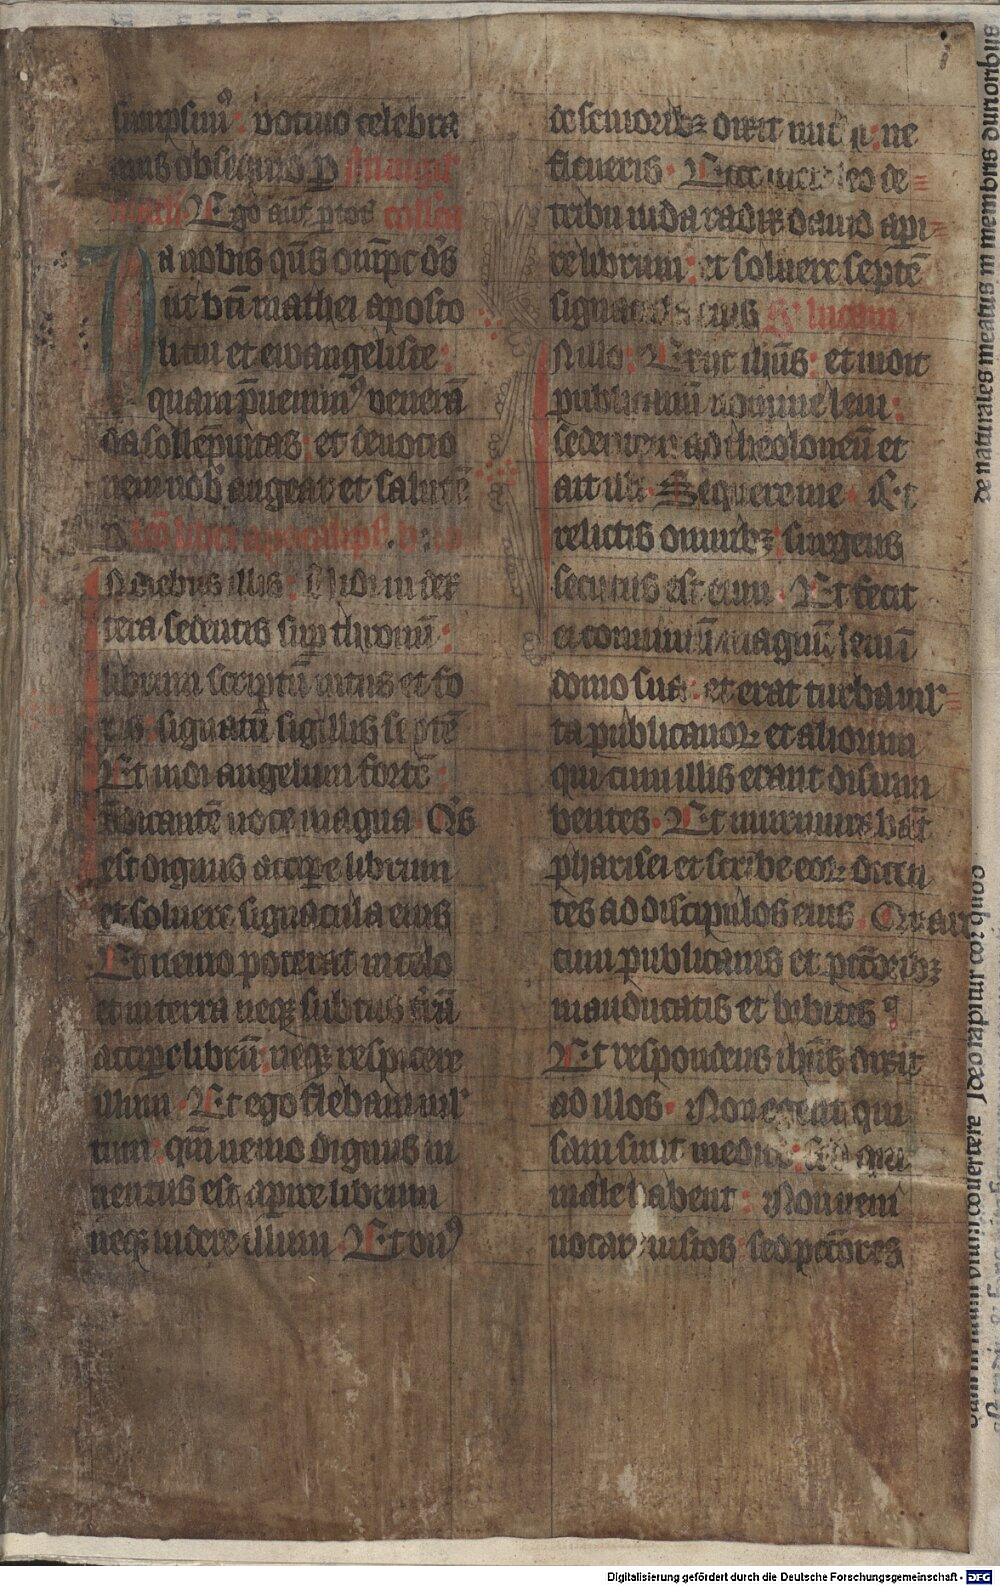 sumpsim⁹: votiuo celebra
mus obsequio p
math. Ego aut
a nobis qūs omp̄c ds̄
ut bt̄i mathei aposto
li tui et ewangeliste:
quam p̄uenim⁹ venerā
da sollēpnitas: et deuotio
nem nob̄ augeat et salutē
libri apocalips
N diebus illis: Vidi in dex
tera sedentis sup̄ thronū:
librum scriptū intus et fo
ris: signatū sigillis septē
Et uidi angelum fortē:
p̄dicantē uoce magna. Qⁱs
est dignus accip̄e librum
et soluere signacula eius
Et nemo poterat in celo
et in terra neqꝫ subtus t̄rā
accip̄e librū: neqꝫ respicere
illum. Et ego flebam ml̄
tum: qm̄ nemo dignus in
uentus est apire librum
neqꝫ uidere illum. Et vn⁹
de senioribꝫ dixit michi: ne
fleueris. Ecce uicit leo de
tribu iuda radix dauid api
re librum: et soluere septē
signacula eius S' lucam
N illo: Exijt ih̄us: et uidit
publicanū nomine leui:
sedentem ad theoloneū et
ait illi. Sequere me. Et
relictis omnibꝫ: surgens
secutus est eum. Et fecit
ei conuiuiū magnū leui ī
domo sua: et erat turba ml̄
ta publicanoꝝ et aliorum
qui cum illis erant discum
bentes. Et murmurabāt
pharisei et scribe eoꝝ dicen
tes ad discipulos eius. Quare
cum publicanis et pctōribꝫ
manducatis et bibitis
Et respondens ih̄us dixit
ad illos. Non egent qui
sani sunt medico: sed qui
male habent: Non ueni
uocare iustos sed pctōres
& naturales meatus in membris durioribus
Ideo rapitur cor quod
Digitalisierung gefördert durch die Deutsche Forschungsgemeinschaft - DFG